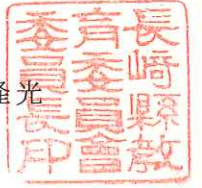 光
長崎縣教
育委員會
委員長印